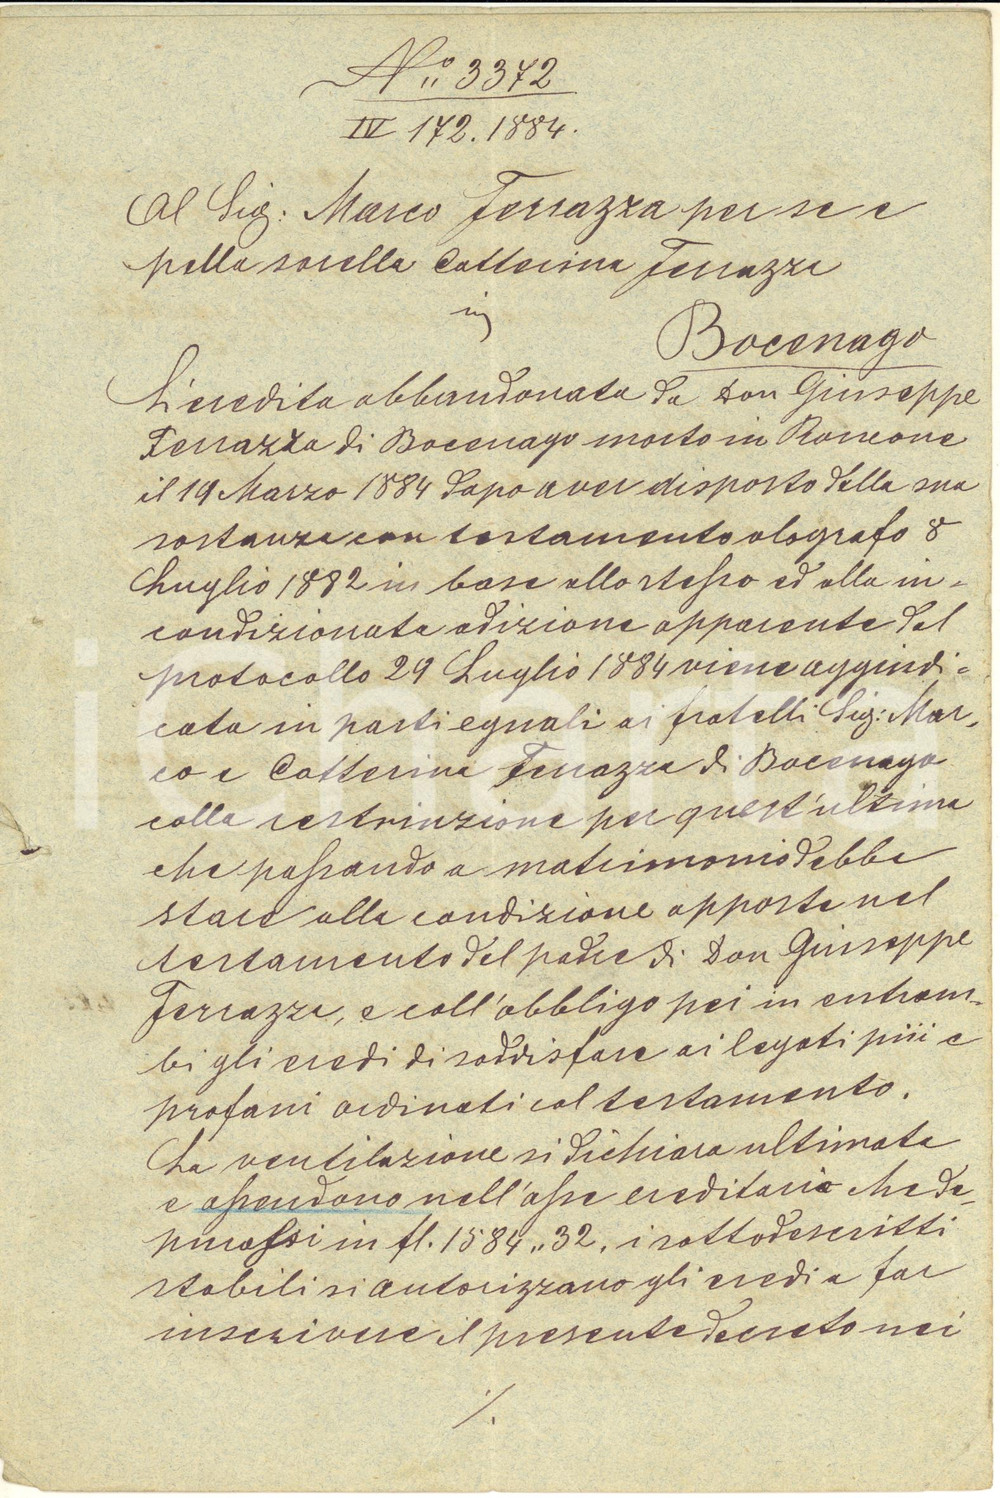 No. 3372
IV 172. 1884.
Al Sig: Marco Ferrazza per se e
pella sorella Catterina Ferrazza
in
Bocenago
L'eredita abbandonata da Don Giuseppe
Ferrazza di Bocenago morto in Roncone
il 19 Marzo 1884 dopo aver disposto della sua
sostanza con testamento olografo 8
Luglio 1882 in base allo stesso ed alla in-
condizionata adizione apparente dal
protocollo 29 Luglio 1884 viene aggiudi-
cata in parti eguali ai fratelli Sig: Mar-
co e Catterina Ferrazza di Bocenago
colla restrinzione per quest'ultima
che passando a matrimonio debba
stare alla condizione apposta nel
testamento del padre di Don Giuseppe
Ferrazza, e coll'obbligo poi in entram-
bi gli eredi di soddisfare ai legati piii e
profani ordinati col testamento.
La ventilazione si dichiara ultimata
e assendono nell'asse ereditario che de-
purossi in fl. 1584„32. i sottodescritti
stabili si autorizzano gli eredi a far
inscrivere il presente decreto nei
./.